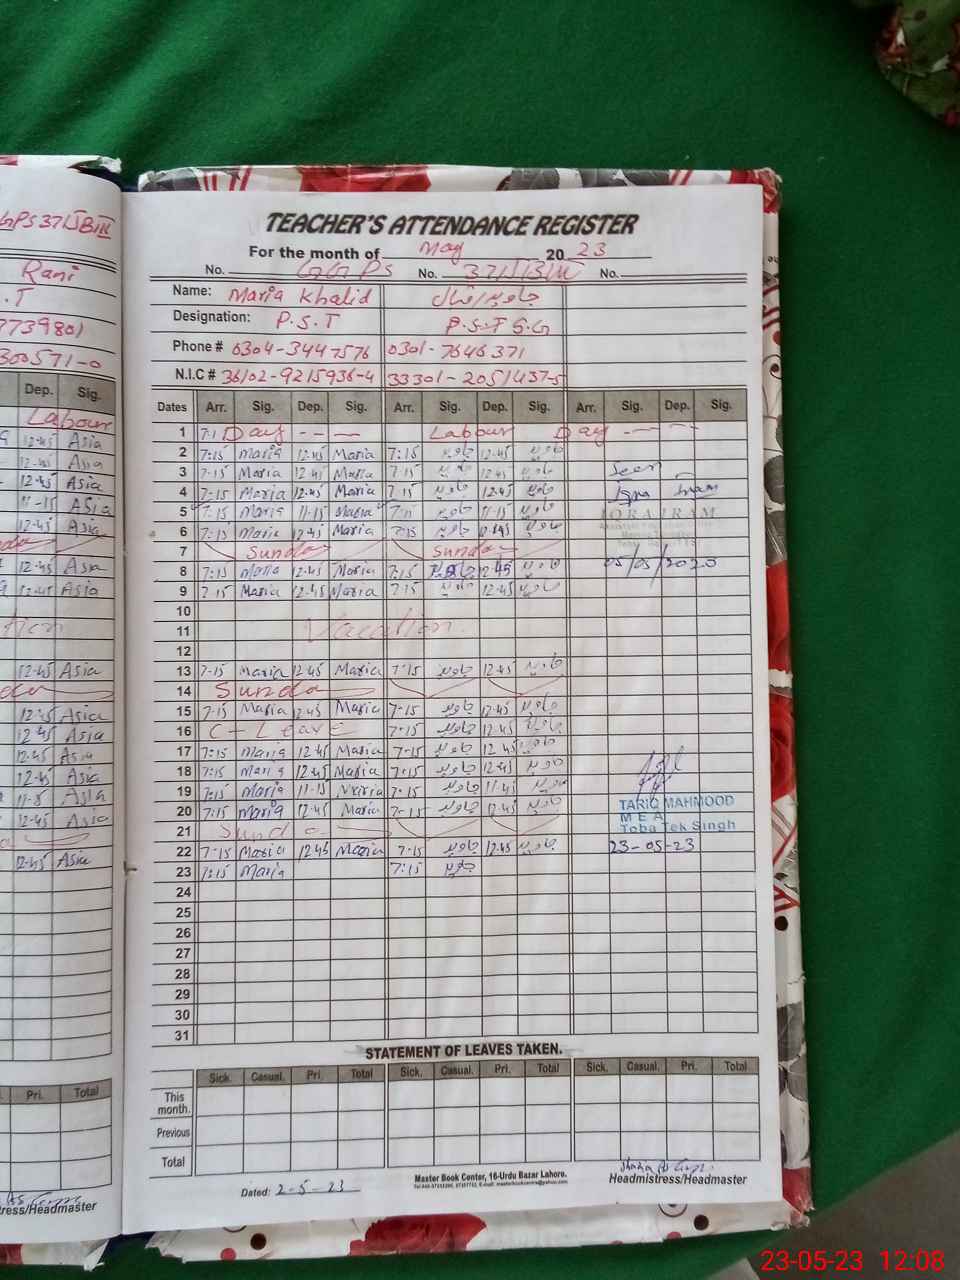 Rani
Dep. Sig.
Labour
12-45 Asia
12-45 Asia
12-45 Asia
11-15 Asia
12-45 Asia
12-45 Asia
12-45 Asia
12-45 Asia
12-45 Asia
12-45 Asia
12-45 Asia
12-45 Asia
Asia
12-45 Asia
12-45 Asia
Pri. Total
TEACHER'S ATTENDANCE REGISTER
For the month of May 2023
No. GGPS No. No.
Name: Maria Khalid جاوید اقبال
Designation: P.S.T
Phone # 0304-3447576 0301-7646371
N.I.C # 36102-9215936-4 33301-2051437-5
Dates Arr. Sig. Dep. Sig. Arr. Sig. Dep. Sig. Arr. Sig. Dep. Sig.
1 Day Labour Day
2 7:15 Maria 12:45 Maria 7:15 جاوید 12-45 جاوید
3 7-15 Maria 12-45 Maria 7-15 جاوید 12-45 جاوید Seen
4 7-15 Maria 12-45 Maria 7-15 جاوید 12-45 جاوید Iqra Iram
5 7-15 Maria 11-15 Maria 7:15 جاوید 11-15 جاوید IQRA IRAM
6 7:15 Maria 12-45 Maria 7:15 جاوید 12-45 جاوید
7 Sunday Sunday
8 7:15 Maria 12-45 Maria 7:15 جاوید 12-45 جاوید 05/05/2020
9 7-15 Maria 12-45 Maria 7-15 جاوید 12-45 جاوید
10
11 Vacation
12
13 7-15 Maria 12-45 Maria 7-15 جاوید 12-45 جاوید
14 Sunda
15 7-15 Maria 12-45 Maria 7-15 جاوید 12-45 جاوید
16 C-Leave 7-15 جاوید 12-45 جاوید
17 7:15 Maria 12-45 Maria 7-15 جاوید 12-45 جاوید
18 7:15 Maria 12-45 Maria 7:15 جاوید 12-45 جاوید
19 7:15 Maria 11-15 Maria 7-15 جاوید 11-45 جاوید
20 7:15 Maria 12-45 Maria 7-15 جاوید 12-45 جاوید TARIQ MAHMOOD
M E A
21 Sunda Toba Tek Singh
22 7-15 Maria 12-45 Maria 7-15 جاوید 12-45 جاوید 23-05-23
23 7:15 Maria 7:15 جاوید
24
25
26
27
28
29
30
31
STATEMENT OF LEAVES TAKEN.
Sick. Casual. Pri. Total Sick. Casual. Pri. Total Sick. Casual. Pri. Total
This month.
Previous
Total
Dated: 2-5-23
Master Book Center, 16-Urdu Bazar Lahore.
Headmistress/Headmaster
ress/Headmaster
23-05-23 12:08